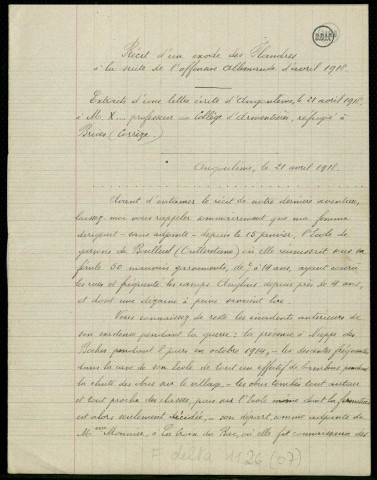 Récit d'un exode des Flandres
à la suite de l'offensive allemande d'avril 1918.
Extraits d'une lettre écrite d'Angoulême, le 21 avril 1918,
à M. X... professeur au Collège d'Armentières, réfugié à
Brives (Corrèze)
Angoulême, le 21 avril 1918.
Avant d'entamer le récit de notre dernière aventure,
laissez-moi vous rappeler sommairement que ma femme
dirigeait - sans adjointe - depuis le 15 janvier, l'École de
garçons de Bailleul où elle réunissait sous sa
férule 50 mauvais garnements, de à 14 ans, ayant couru
les rues et fréquenté les camps Anglais depuis près de 4 ans,
et dont une dizaine à peine savaient lire.
Vous connaissez de reste les incidents antérieurs de
son pendant la guerre : la présence à Nieppe des
Boches pendant 8 jours en octobre 1914, - les descentes fréquentes
dans la cave de son école de tout un effectif de bambins pendant
la chute des obus sur le village, - les obus tombés tout autour
et tout proche des classes, puis sur l'école dont la fermeture
est alors seulement décidée, - son départ, comme adjointe de
Mme Monnier, à La Croix du Bac, où elle fit connaissance des
F delta 1126 (07)